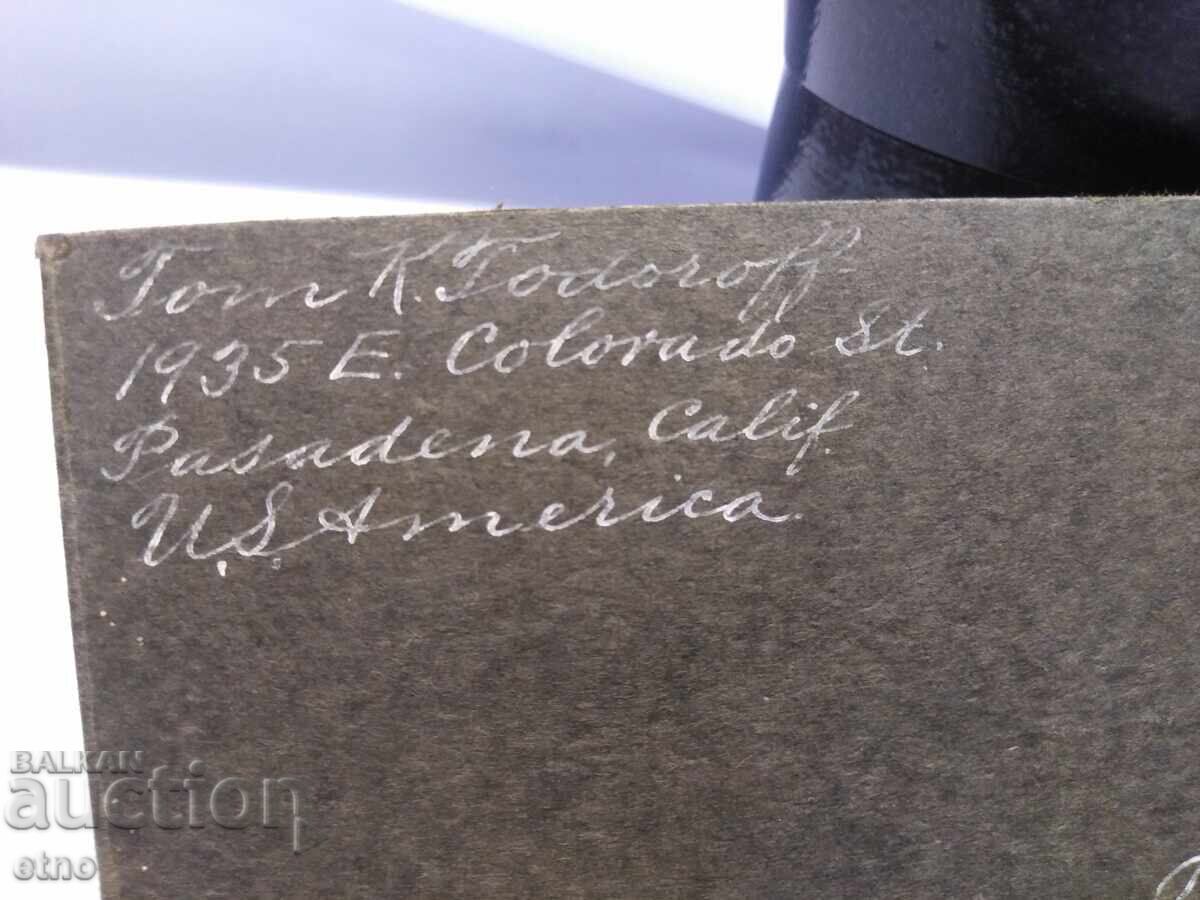 Tom K. Todoroff
1935 E. Colorado St.
Pasadena, Calif.
U.S. America.
BALKAN
auction
etno